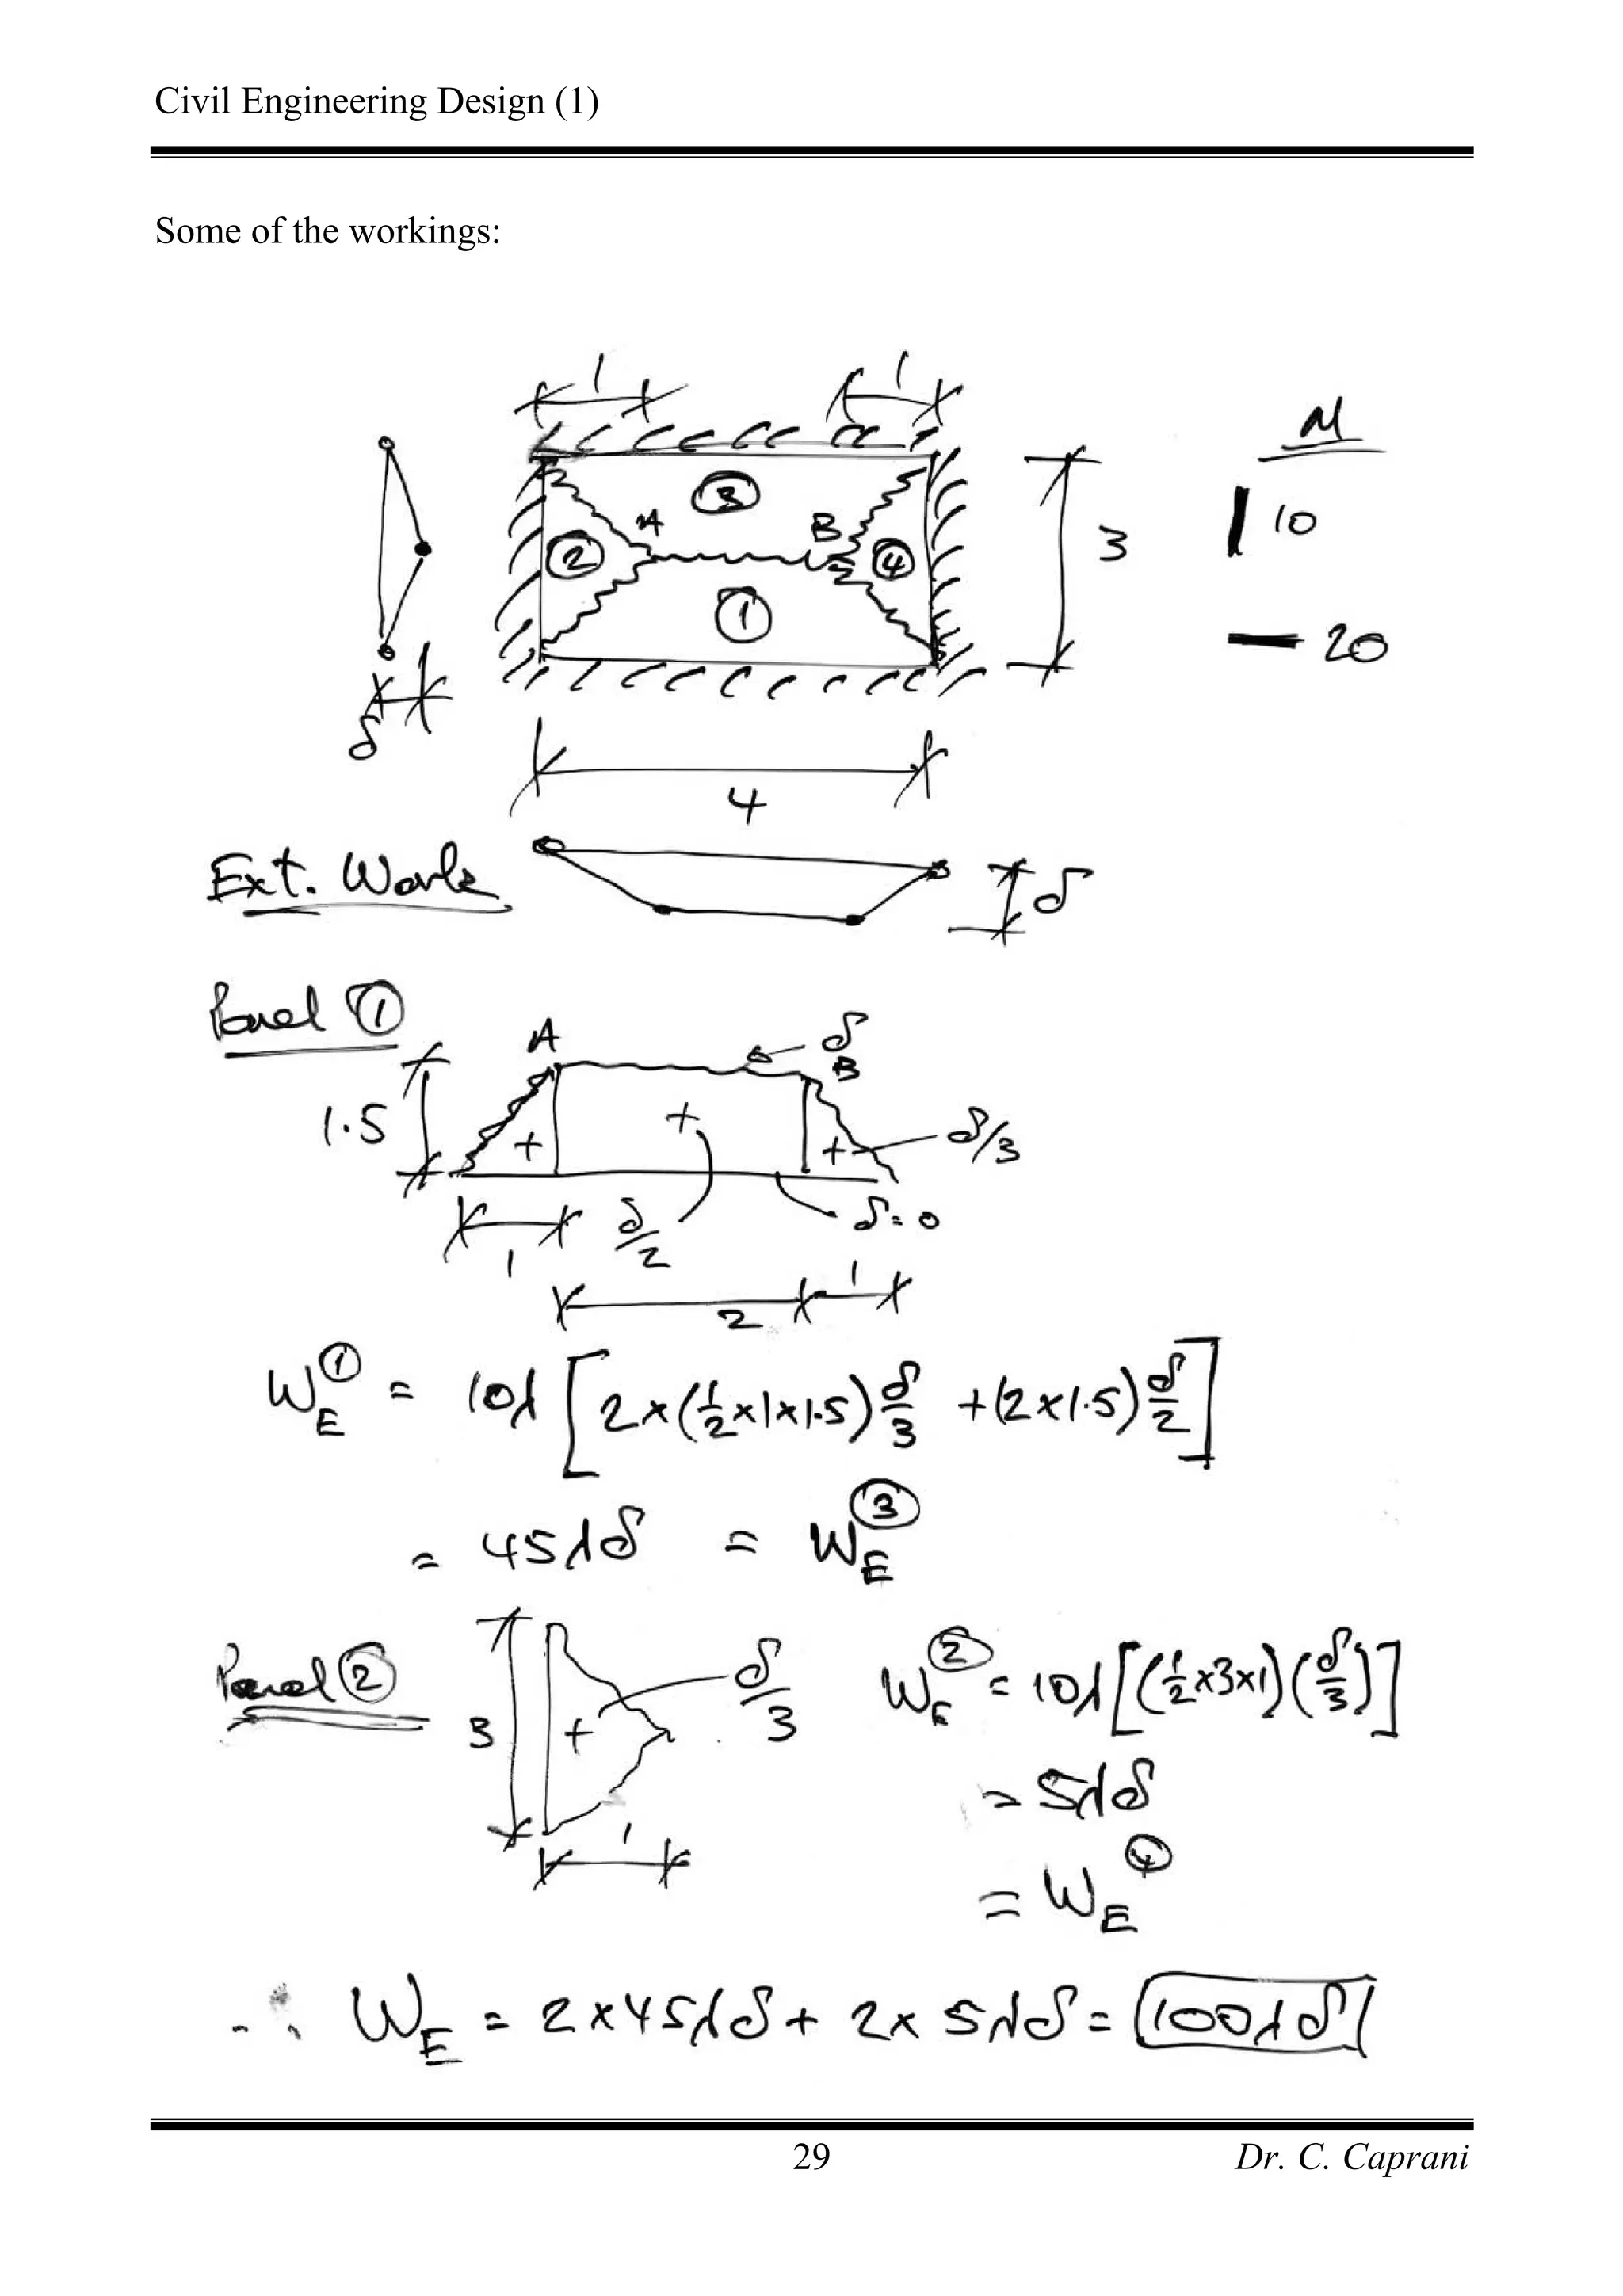 Civil Engineering Design (1)
Some of the workings:
1 1
M
3
A B
2 4
3
1
10
20
δ
4
Ext. Work
δ
Panel 1
A
δ
B
1.5
+ + +
δ/3
1
δ/2
δ=0
2 1
W_E^① = 10λ [2×(½×1×1.5) δ/3 + (2×1.5) δ/2]
= 45λδ = W_E^③
Panel 2
3
+
δ/3
1
W_E^② = 10λ[(½×3×1)(δ/3)]
= 5λδ
= W_E^④
∴ W_E = 2×45λδ + 2×5λδ = 100λδ
29
Dr. C. Caprani